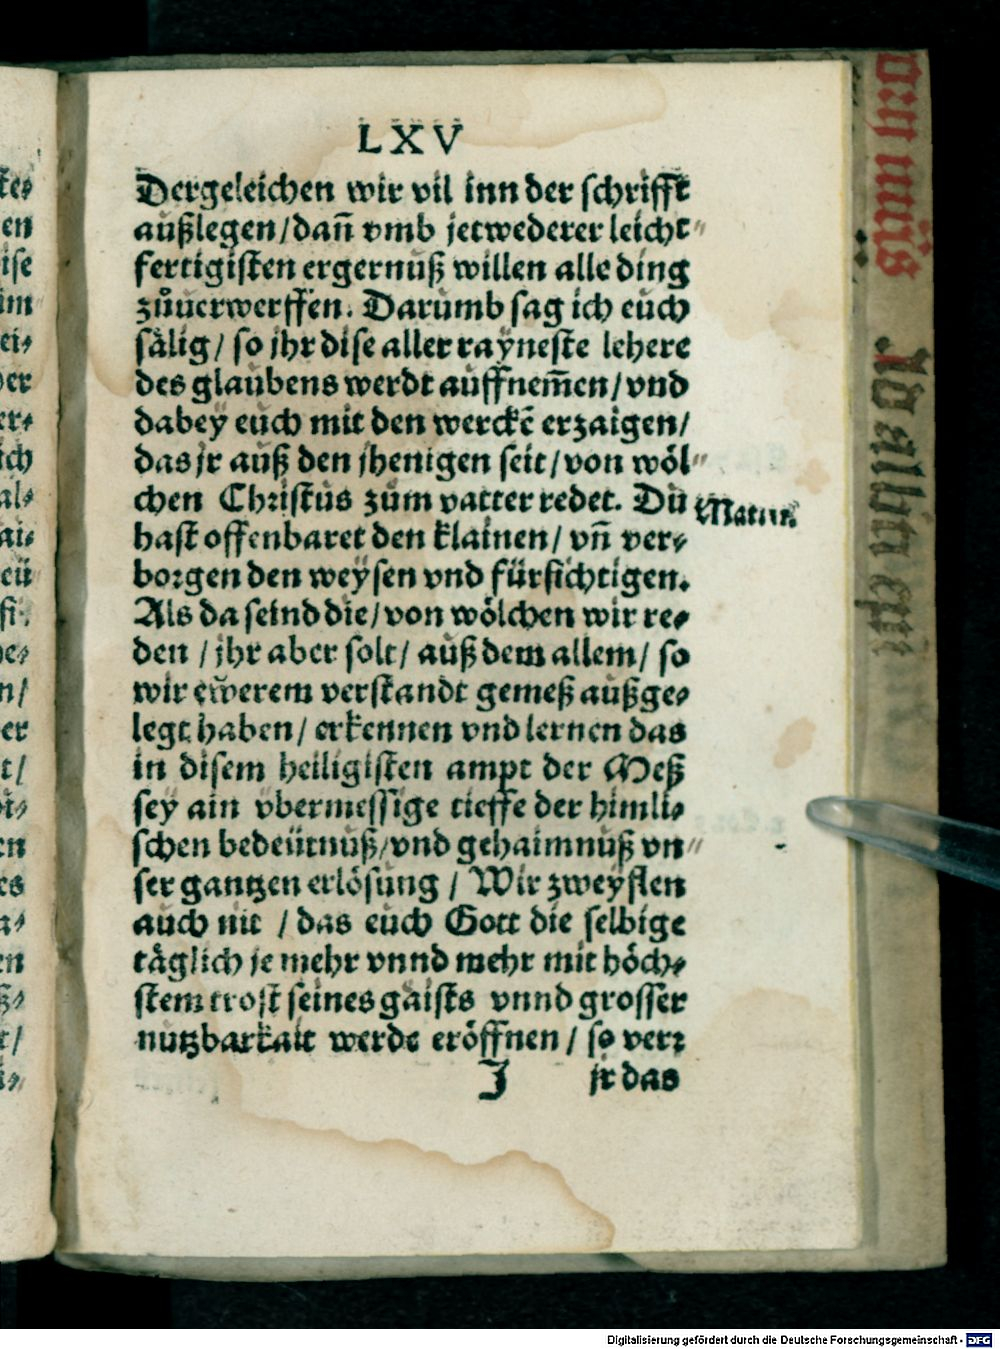 LXV
Dergeleichen wir vil inn der schrifft
außlegen/dañ vmb jetwederer leicht⸗
fertigisten ergernuß willen alle ding
zůuerwerffen. Darumb sag ich euch
sälig/ so jhr dise aller rayneste lehere
des glaubens werdt auffnem̃en/vnd
dabey euch mit den werckẽ erzaigen/
das jr auß den jhenigen seit/von wöl⸗
chen Christus zům vatter redet. Du
hast offenbaret den klainen/ vñ ver⸗
borgen den weysen vnd fürsichtigen.
Als da seind die/von wölchen wir re⸗
den /jhr aber solt/ auß dem allem/ so
wir ewerem verstandt gemeß außge⸗
legt haben/ erkennen vnd lernen das
in disem heiligisten ampt der Meß
sey ain vbermessige tieffe der himli⸗
schen bedeütnuß/vnd gehaimnuß vn⸗
ser gantzen erlösung / Wir zweyflen
auch nit /das euch Gott die selbige
täglich je mehr vnnd mehr mit höch⸗
stem trost seines gaists vnnd grosser
nutzbarkait werde eröffnen/ so ver⸗
J jr das
Digitalisierung gefördert durch die Deutsche Forschungsgemeinschaft - DFG